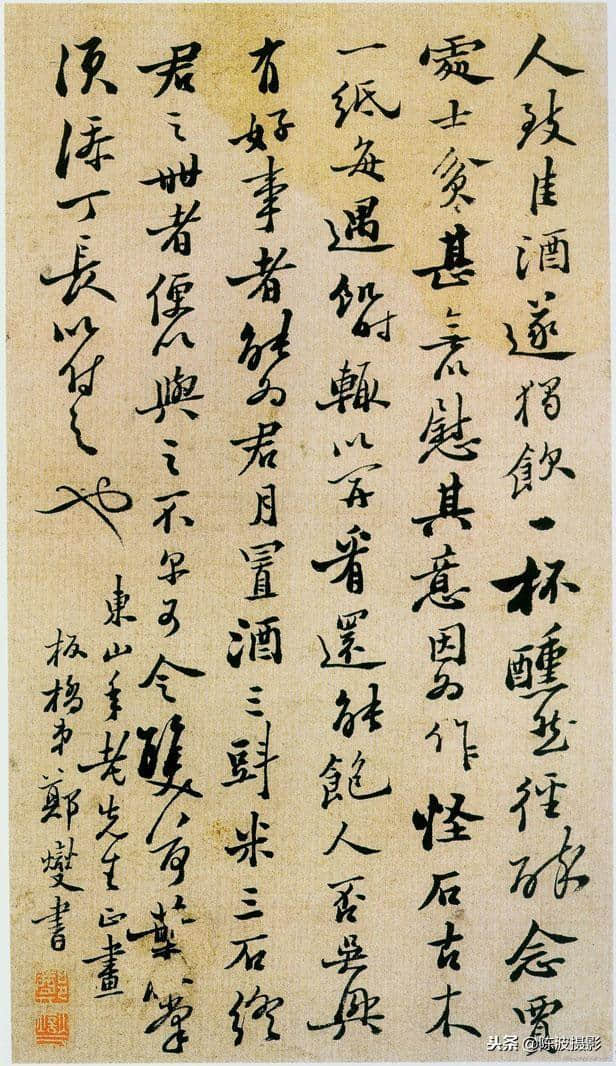 人致佳酒遂獨飲一杯醺然徑醉念賈
處士貧甚無以慰其意因為作怪石古木
一紙每遇飢時輒以開看還能飽人否吳興
有好事者能為君月置酒三㪷米三石終
君之世者便以與之不尔可令雙荷葉
須添丁長以付之也
東山年老先生正畫
板橋弟鄭燮書
头条 @陈波摄影